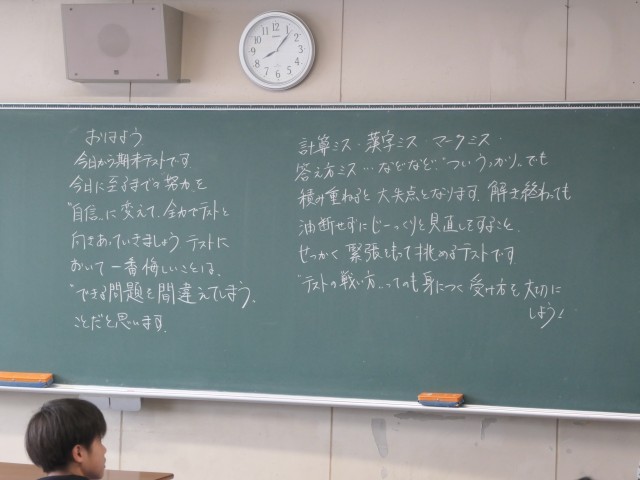 おはよう
今日から期末テストです
今日に至るまでの"努力"を
"自信"に変えて、全力でテストと
向きあっていきましょう テストに
おいて一番悔しいことは、
"できる問題を間違えてしまう"
ことだと思います。
計算ミス・漢字ミス・マークミス・
答え方ミス…などなど…"ついうっかり"でも
積み重ねると大失点となります。解き終わっても
油断せずにじーっくりと見直しをすること。
せっかく緊張もって挑めるテストです
"テストの戦い方"っての も身につく受け方を大切に
しよう!
12
1
2
3
4
5
6
7
8
9
10
11